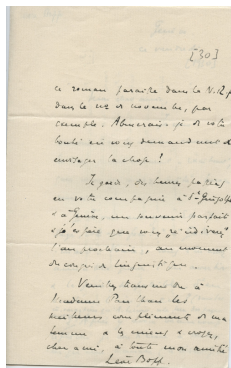 [30]
ce roman paraître dans la N.R.F
dans le nº de novembre, par
exemple. Abuserais-je de votre
bonté en vous demandant de
envisager la chose !
Je garde, des heures passées
en votre compagnie à St Gingolph
et à Genève, un souvenir parfait
et j'espère que vous "récidiverez"
l'an prochain, au moment
du congrès de linguistique.
Veuillez transmettre à
Madame Paulhan les
meilleurs compliments de ma
femme et les miens et croyez,
cher ami, à toute mon amitié
Léon Bopp.